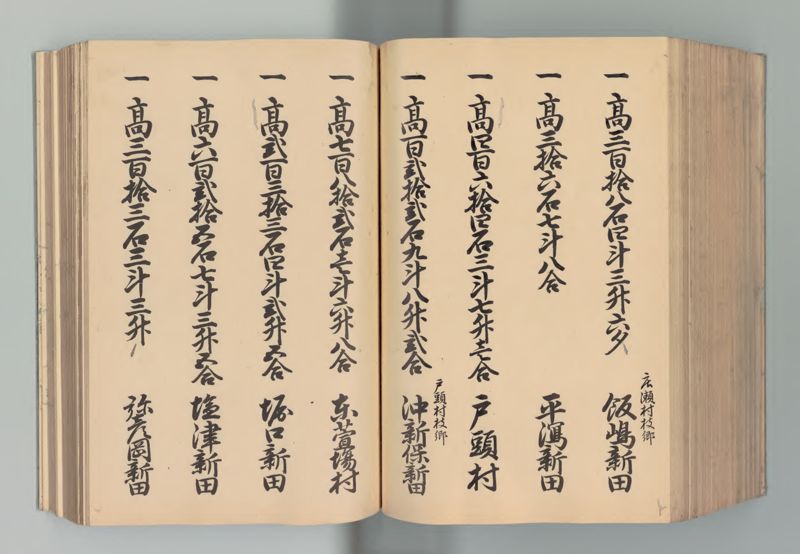 一 高三百拾八石四斗三升六夕
広瀬村枝郷
飯嶋新田
一 高三拾六石七斗八合
平潟新田
一 高四百六拾四石三斗七升壱合
戸頭村
一 高百弐拾弐石九斗八升弐合
戸頭村枝郷
沖新保新田
一 高七百八拾弐石壱斗六升八合
東萱場村
一 高弐百三拾三石四斗弐升五合
堀口新田
一 高六百弐拾五石七斗三升五合
塩津新田
一 高三百拾三石三斗三升
弥彦岡新田